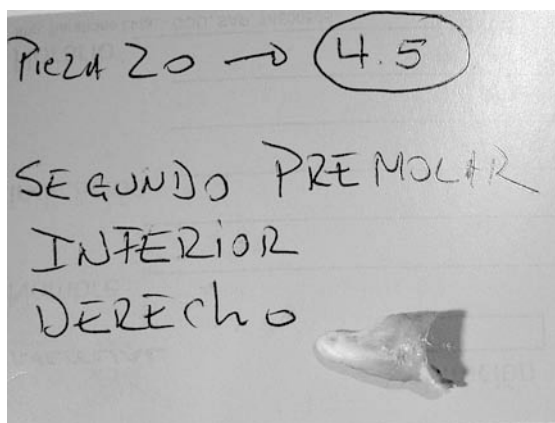 Pieza 20 → 4.5
SEGUNDO PREMOLAR
INFERIOR
DERECho